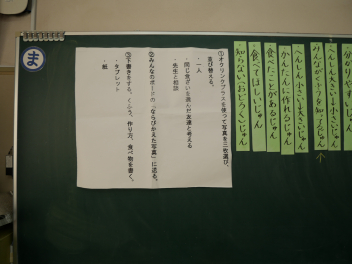 ま
分かりやすいじゅん
へんしん大きい→小さいじゅん
みんながくふうを知った人じゅん
へんしん小さい→大きいじゅん
かんたんに作れるじゅん
食べたことがあるじゅん
食べてほしいじゅん
知らない、おどろくじゅん
①オクリンクプラスを使って写真を三枚選び、
並び替える。
・一人
・同じ見ざいを選んだ友達と考える
・先生と相談
②みんなのボードの「ならびかえた写真」に送る。
③下書きをする。くふう、作り方、食べ物を書く。
・タブレット
・紙